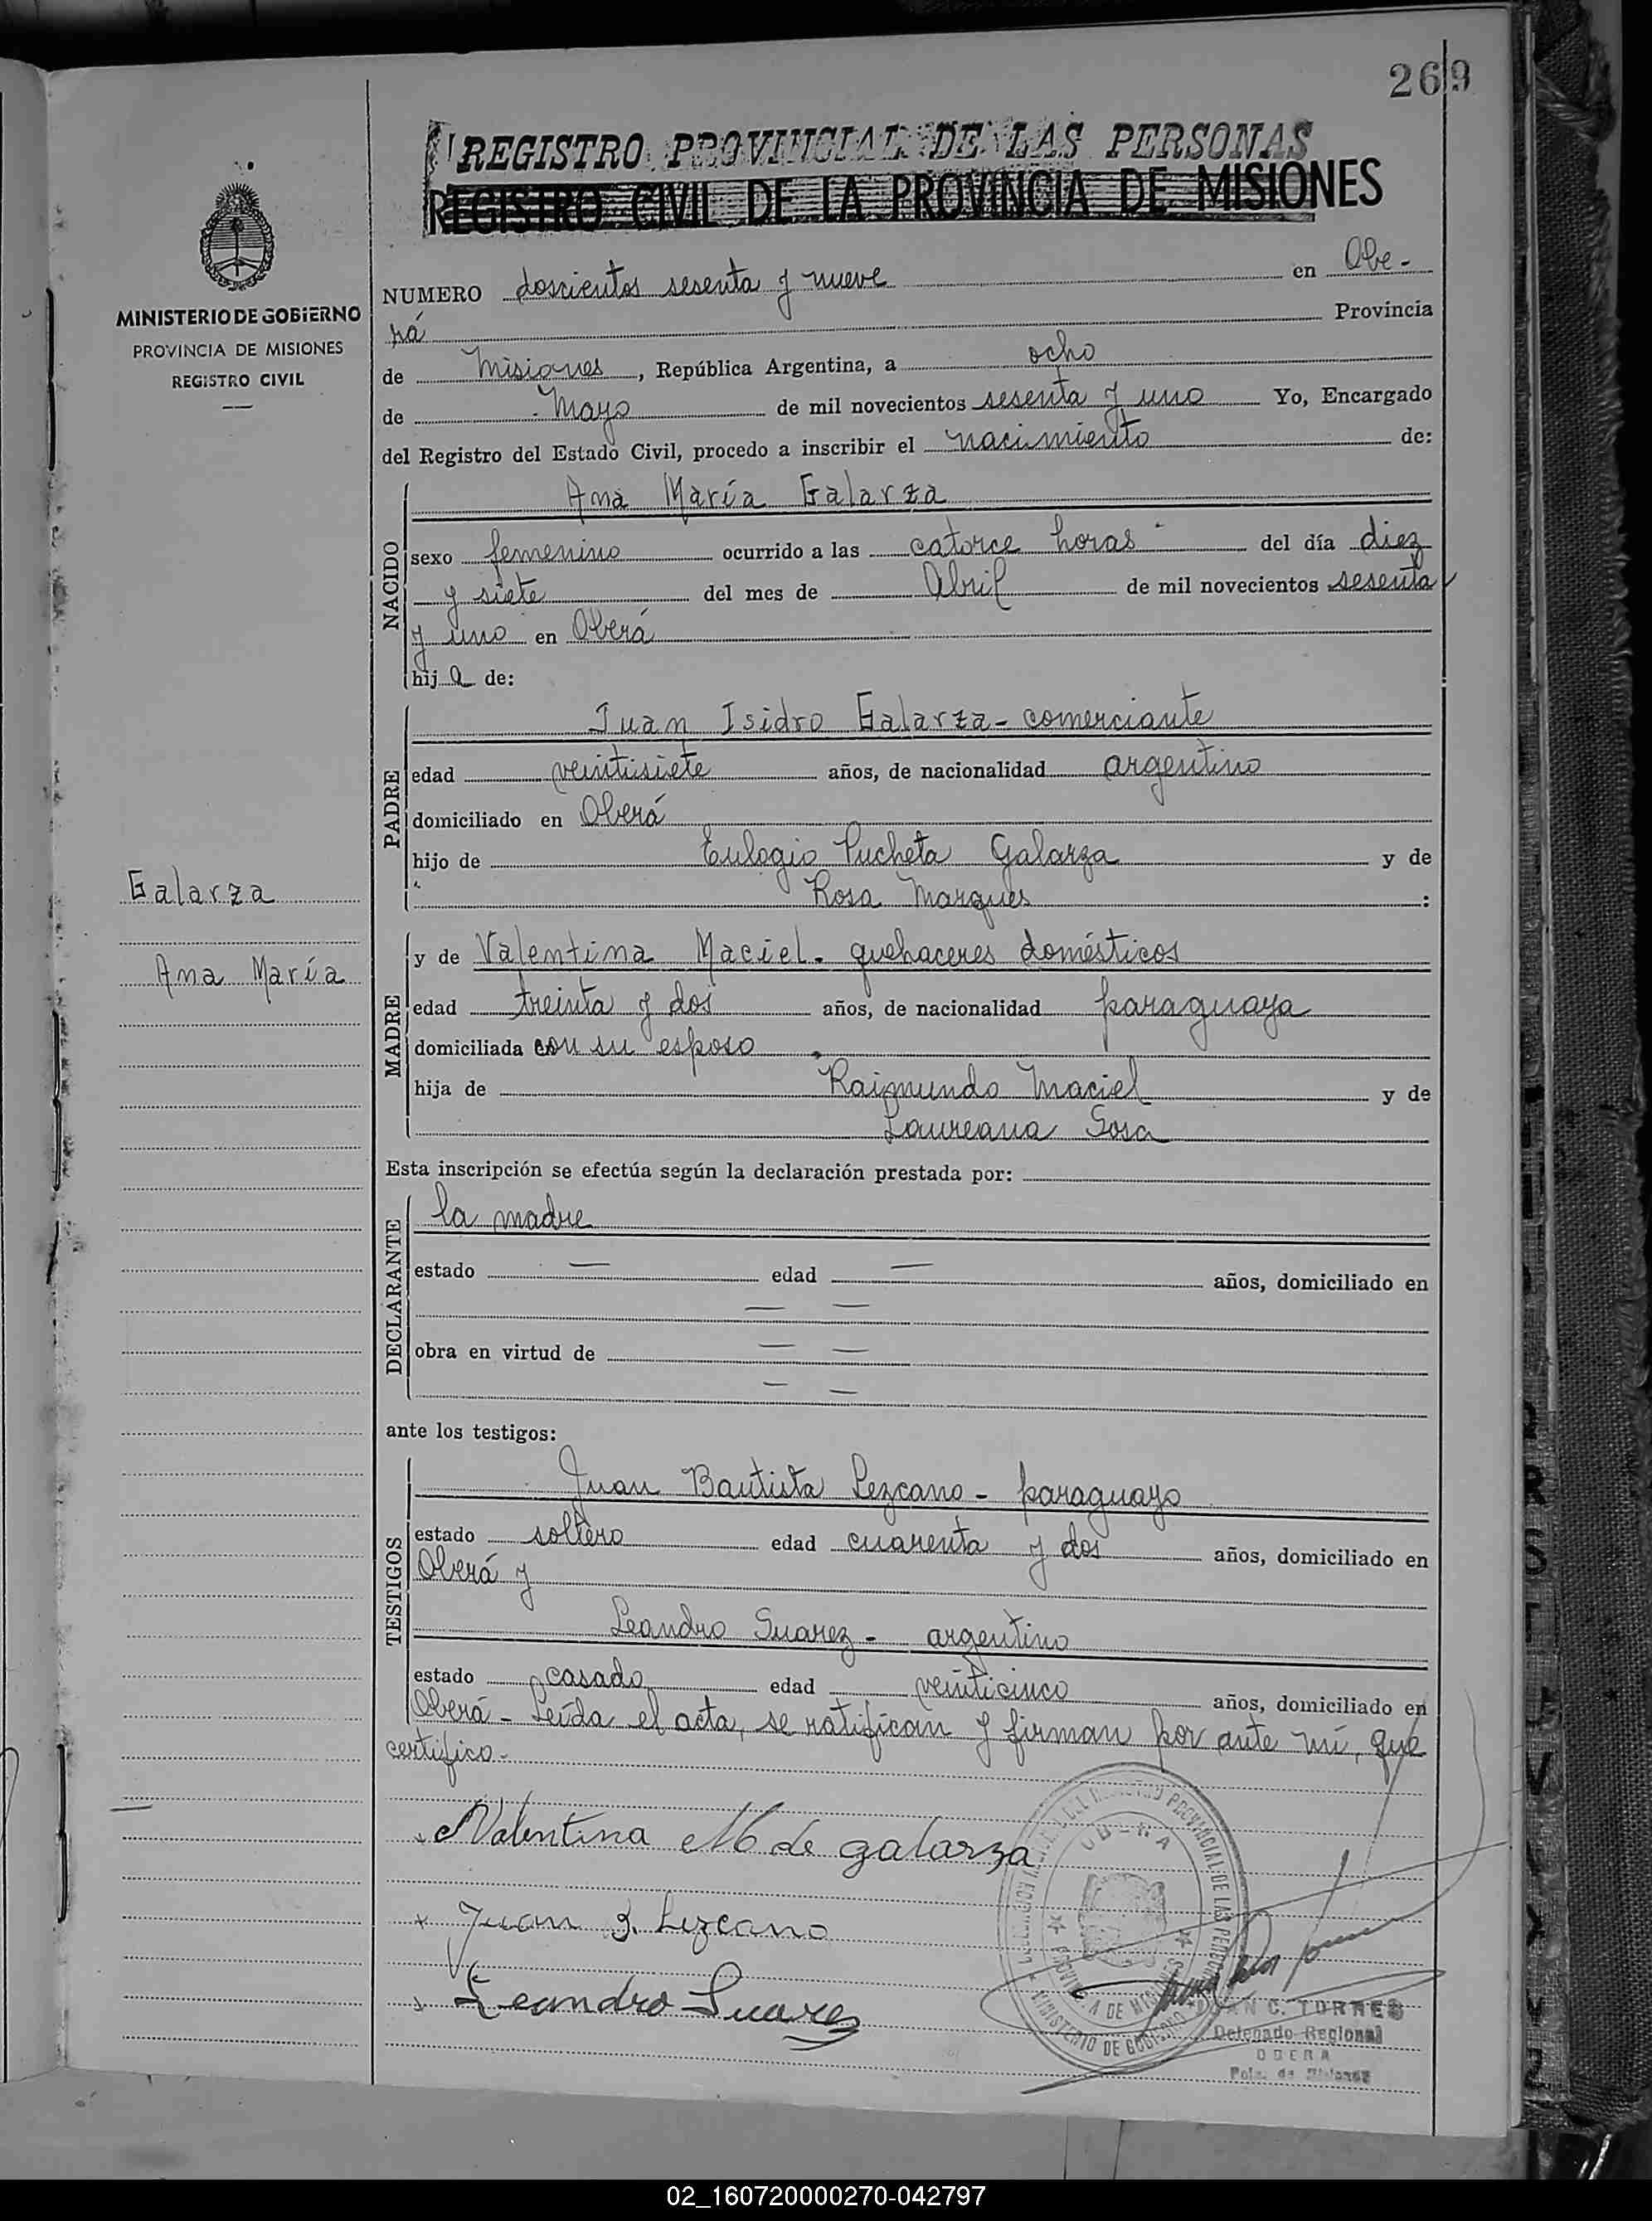 269
REGISTRO PROVINCIAL DE LAS PERSONAS
REGISTRO CIVIL DE LA PROVINCIA DE MISIONES
MINISTERIO DE GOBIERNO
PROVINCIA DE MISIONES
REGISTRO CIVIL
NUMERO doscientos sesenta y nueve en Obe-
rá Provincia
de Misiones, República Argentina, a ocho
de Mayo de mil novecientos sesenta y uno Yo, Encargado
del Registro del Estado Civil, procedo a inscribir el nacimiento de:
NACIDO
Ana María Galarza
sexo femenino ocurrido a las catorce horas del día diez
y siete del mes de Abril de mil novecientos sesenta
y uno en Oberá
hija de:
PADRE
Juan Isidro Galarza - comerciante
edad veintisiete años, de nacionalidad argentino
domiciliado en Oberá
hijo de Eulogio Pucheta Galarza y de
Rosa Marques:
Galarza
Ana María
MADRE
y de Valentina Maciel. quehaceres domésticos
edad treinta y dos años, de nacionalidad paraguaya
domiciliada con su esposo
hija de Raimundo Maciel y de
Laureana Sosa
Esta inscripción se efectúa según la declaración prestada por:
DECLARANTE
la madre
estado — edad — años, domiciliado en
— —
obra en virtud de — —
— —
ante los testigos:
TESTIGOS
Juan Bautista Lezcano - paraguayo
estado soltero edad cuarenta y dos años, domiciliado en
Oberá y
Leandro Suarez - argentino
estado casado edad veinticinco años, domiciliado en
Oberá - Leída el acta, se ratifican y firman por ante mí, que
certifico.-
Valentina M de galarza
Juan B. Lezcano
Leandro Suarez
DEL REGISTRO PROVINCIAL DE LAS PERSONAS
OBERA
PROVINCIA DE MISIONES
MINISTERIO DE GOBIERNO
JUAN C. TORRES
Delegado Regional
OBERA
Pcia. de Misiones
02_160720000270-042797